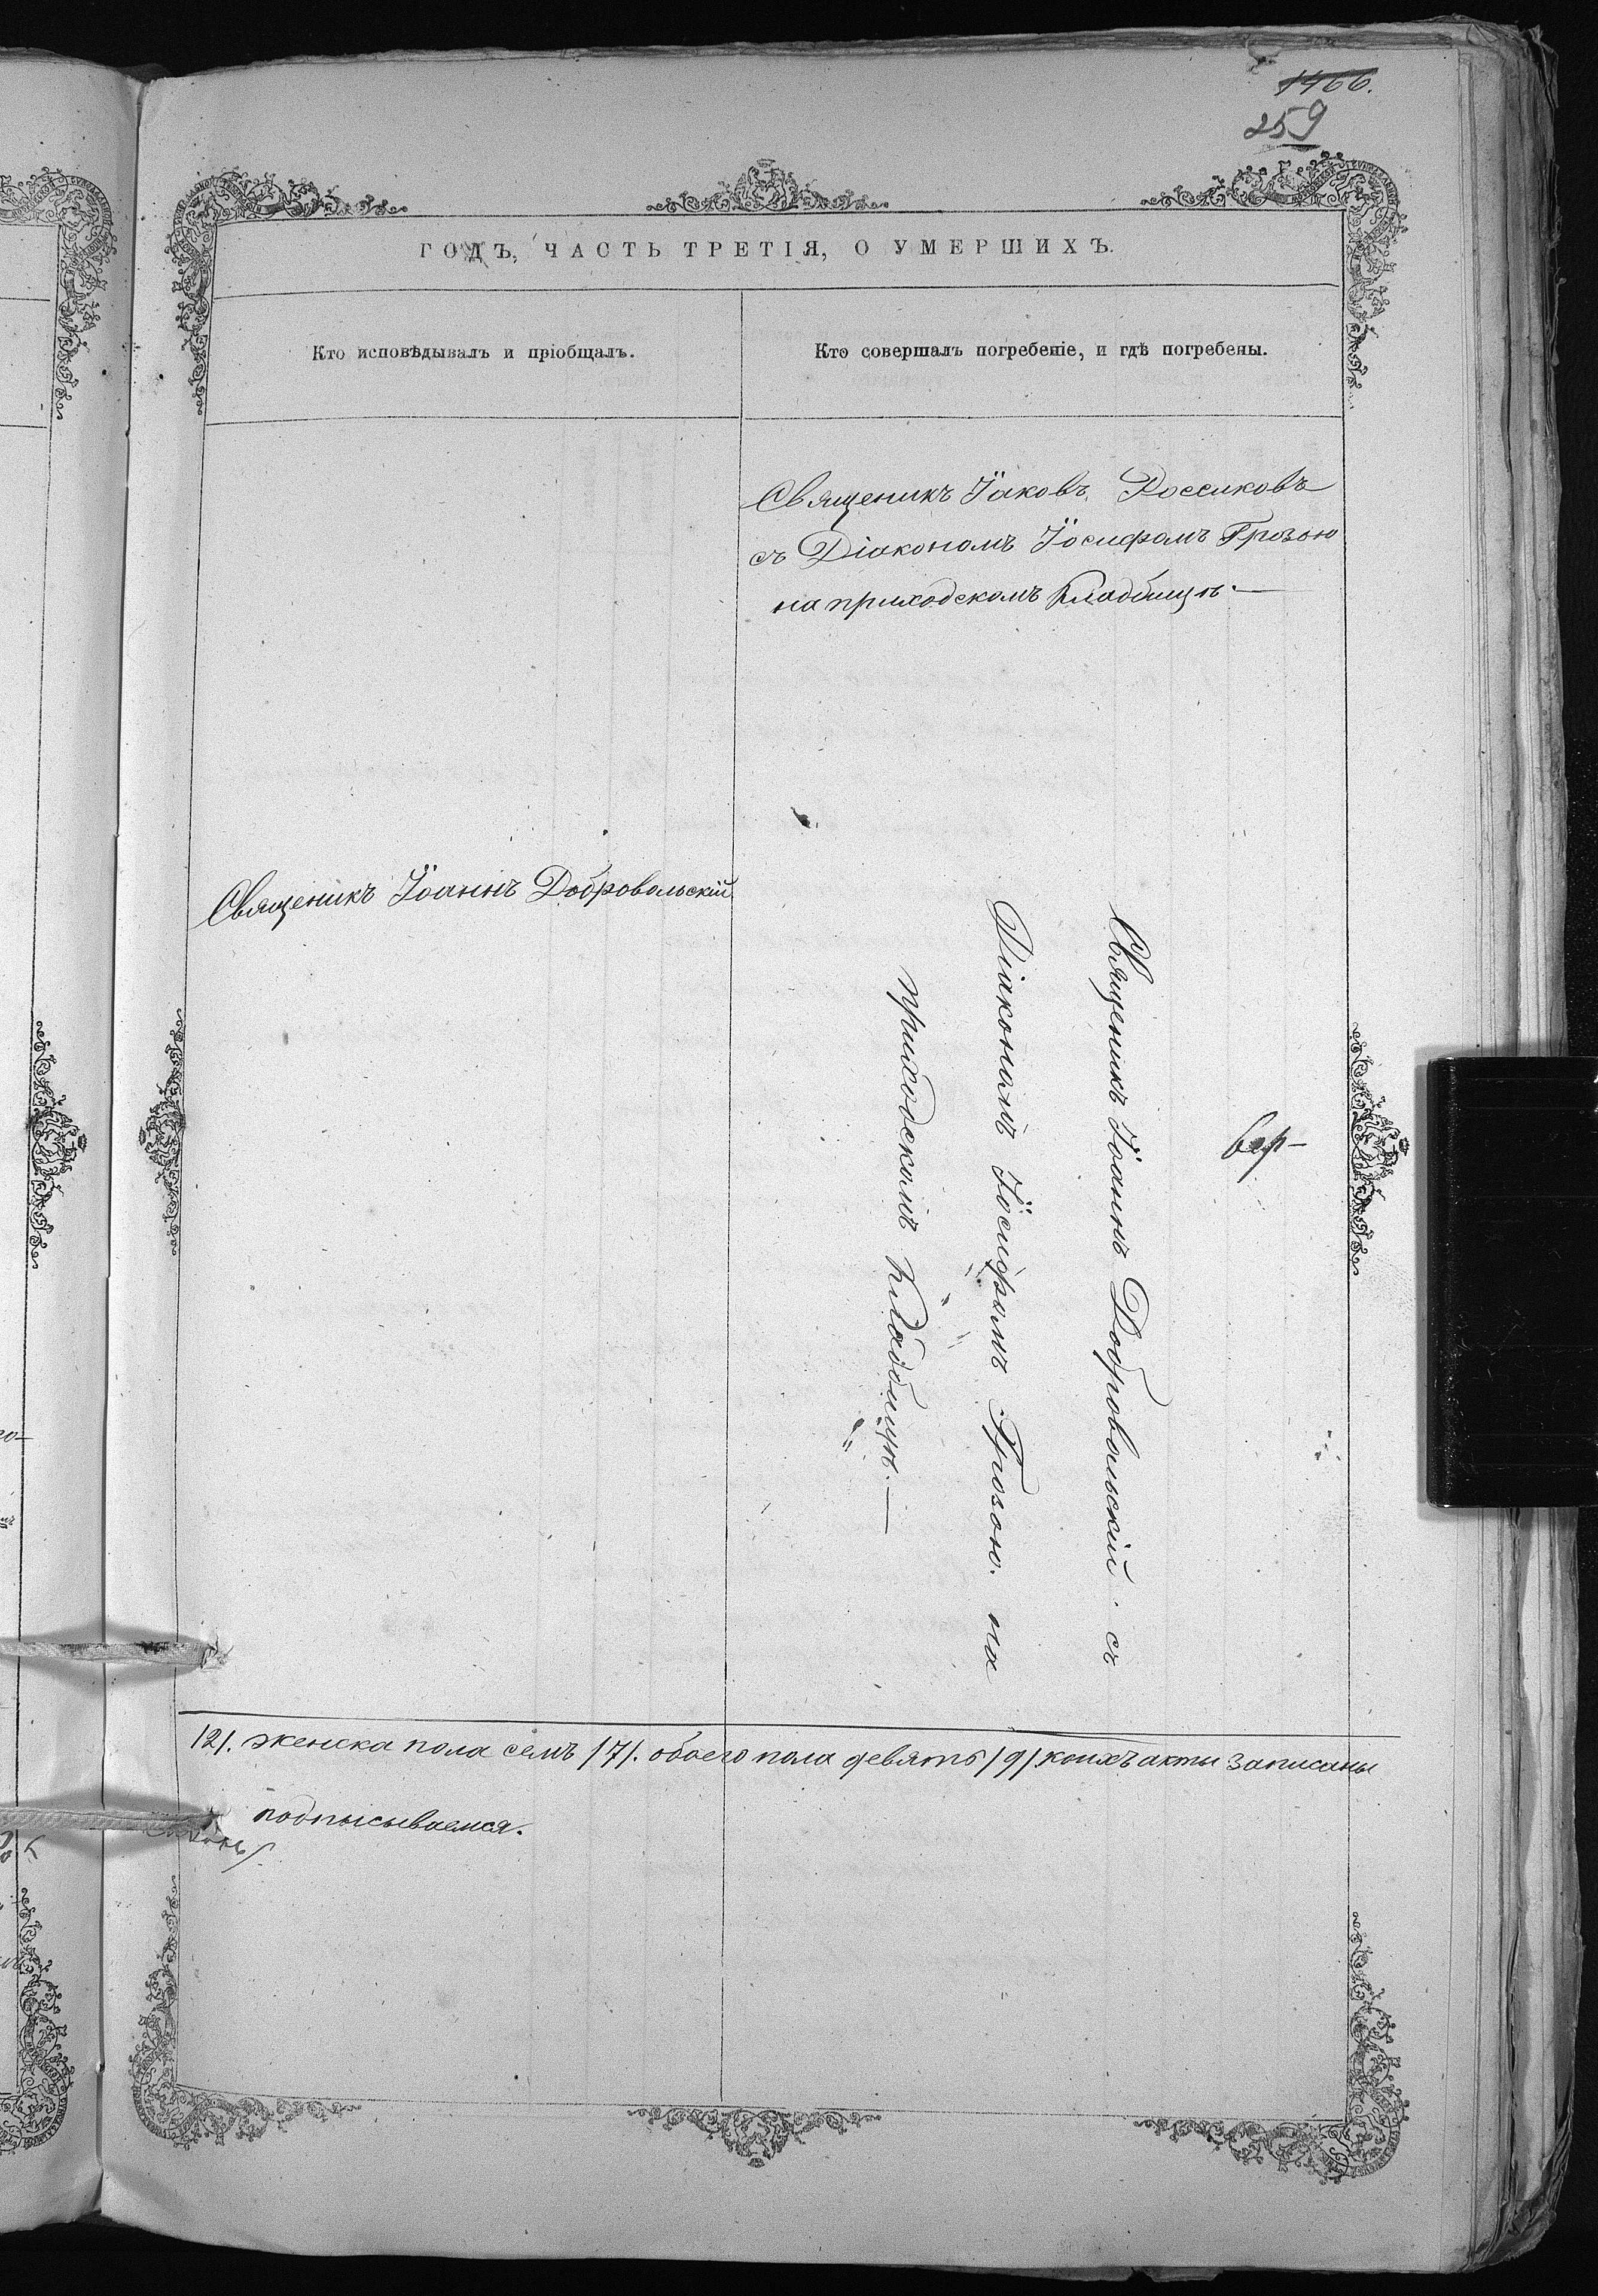 1466.
259
ГОДЪ, ЧАСТЬ ТРЕТІЯ, О УМЕРШИХЪ.
Кто исповѣдывалъ и пріобщалъ.
Кто совершалъ погребеніе, и гдѣ погребены.
Священикъ Іаковъ Россиковъ
съ Діакономъ Іосифомъ Грозою
на приходскомъ кладбищѣ. —
Священикъ Іоаннъ Добровольскій
Священикъ Іоаннъ Добровольскій съ
Діакономъ Іосифомъ Грозою на
приходскомъ кладбищѣ. —
/2/. женска пола семъ /7/. обоего пола девять /9/ коихъ акты записаны
подписываемся.